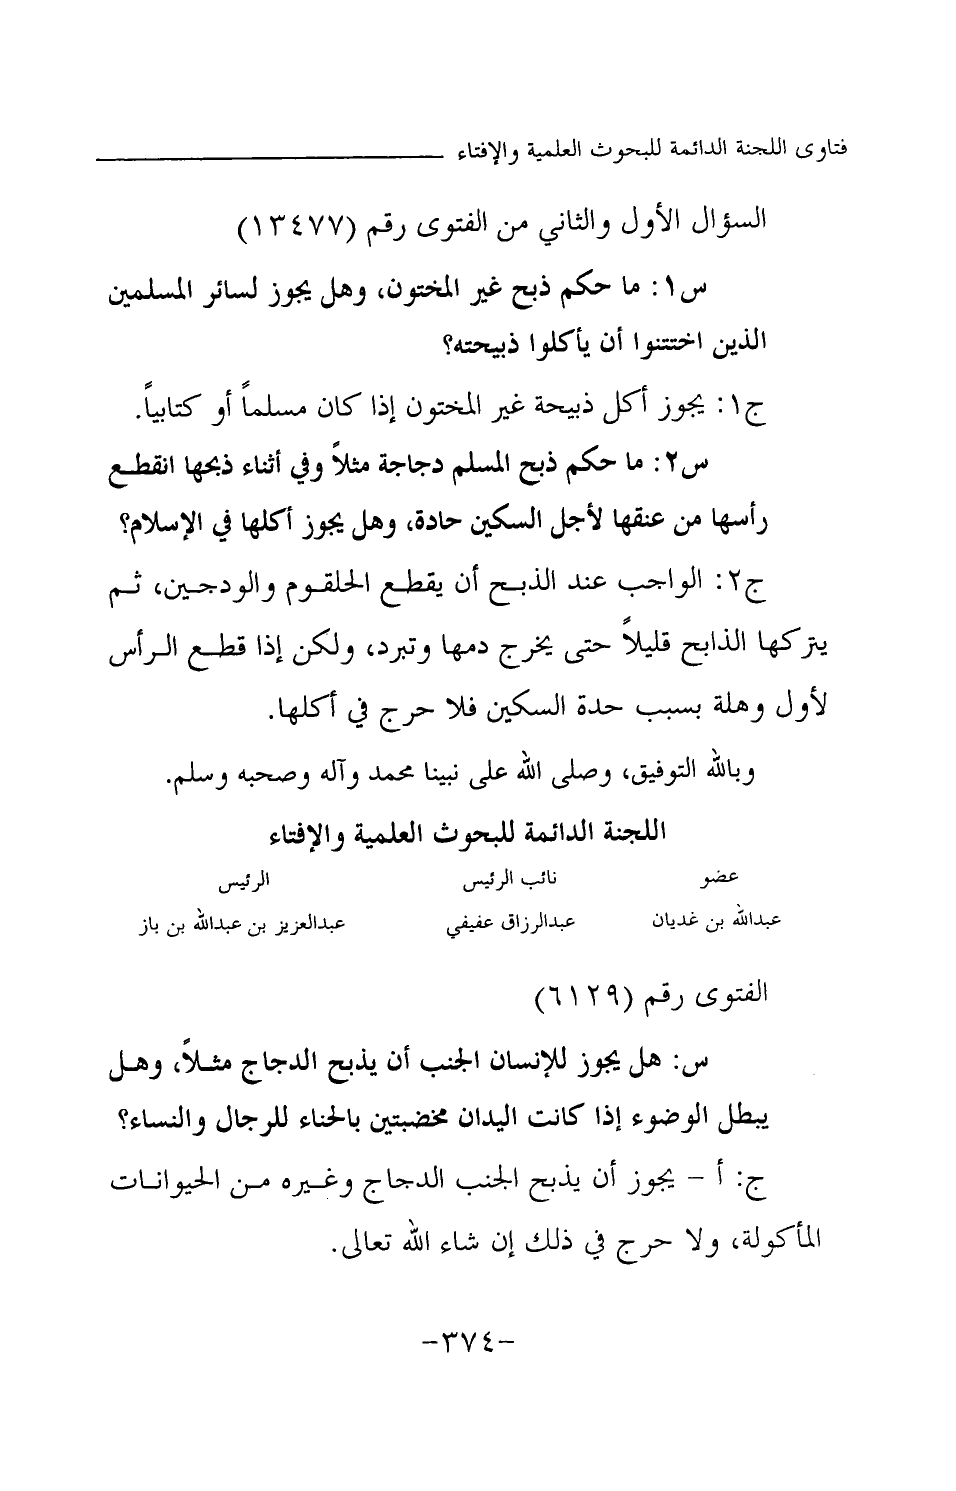 فتاوى اللجنة الدائمة للبحوث العلمية والإفتاء
السؤال الأول والثاني من الفتوى رقم (١٣٤٧٧)
س١: ما حكم ذبح غير المختون، وهل يجوز لسائر المسلمين
الذين اختتنوا أن يأكلوا ذبيحته؟
ج١: يجوز أكل ذبيحة غير المختون إذا كان مسلماً أو كتابياً.
س٢: ما حكم ذبح المسلم دجاجة مثلاً وفي أثناء ذبحها انقطع
رأسها من عنقها لأجل السكين حادة، وهل يجوز أكلها في الإسلام؟
ج٢: الواجب عند الذبح أن يقطع الحلقوم والودجين، ثم
يتركها الذابح قليلاً حتى يخرج دمها وتبرد، ولكن إذا قطع الرأس
لأول وهلة بسبب حدة السكين فلا حرج في أكلها.
وبالله التوفيق، وصلى الله على نبينا محمد وآله وصحبه وسلم.
اللجنة الدائمة للبحوث العلمية والإفتاء
عضو نائب الرئيس الرئيس
عبدالله بن غديان عبدالرزاق عفيفي عبدالعزيز بن عبدالله بن باز
الفتوى رقم (٦١٢٩)
س: هل يجوز للإنسان الجنب أن يذبح الدجاج مثلاً، وهل
يبطل الوضوء إذا كانت اليدان مخضبتين بالحناء للرجال والنساء؟
ج: أ - يجوز أن يذبح الجنب الدجاج وغيره من الحيوانات
المأكولة، ولا حرج في ذلك إن شاء الله تعالى.
-٣٧٤-